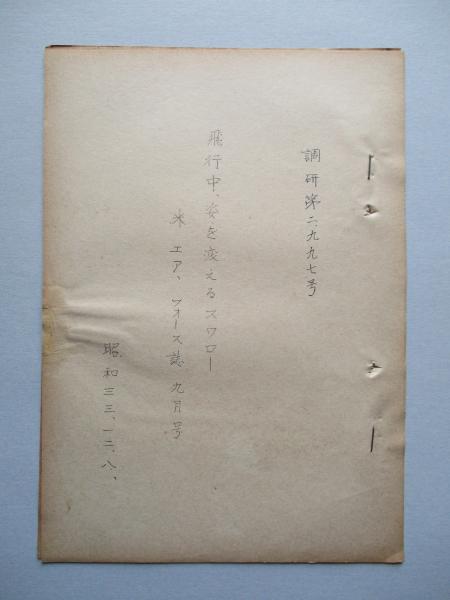 調研第二、九九七号
飛行中、姿を変えるスワロー
米エア、フォース誌九月号
昭和三三、一二、八、